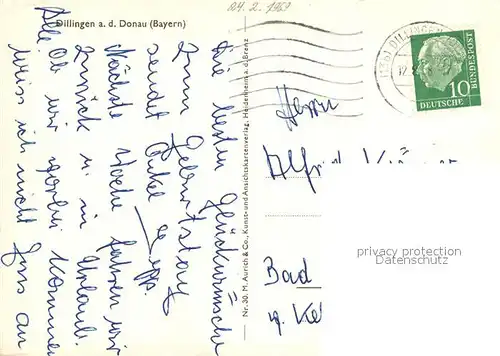 04.2.1959
Dillingen a. d. Donau (Bayern)
Die besten Glückwünsche
zum Geburtstag
sendet Onkel Sepp.
Nächste Woche fahren wir
zurück u. in Urlaub.
Ob wir kommen
weiss ich nicht
Gruss an
Alle
Nr. 30. M. Aurich & Co., Kunst- und Ansichtskartenverlag, Heidenheim a. d. Brenz
DILLINGEN
10
DEUTSCHE
BUNDESPOST
Herrn
Alfred
Bad
privacy protection
Datenschutz